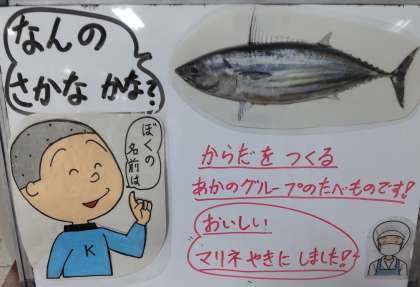 なんの
さかな かな?
ぼくの
名前は
K
からだを つくる
あかのグループのたべものです!
おいしい
マリネやきに しました!